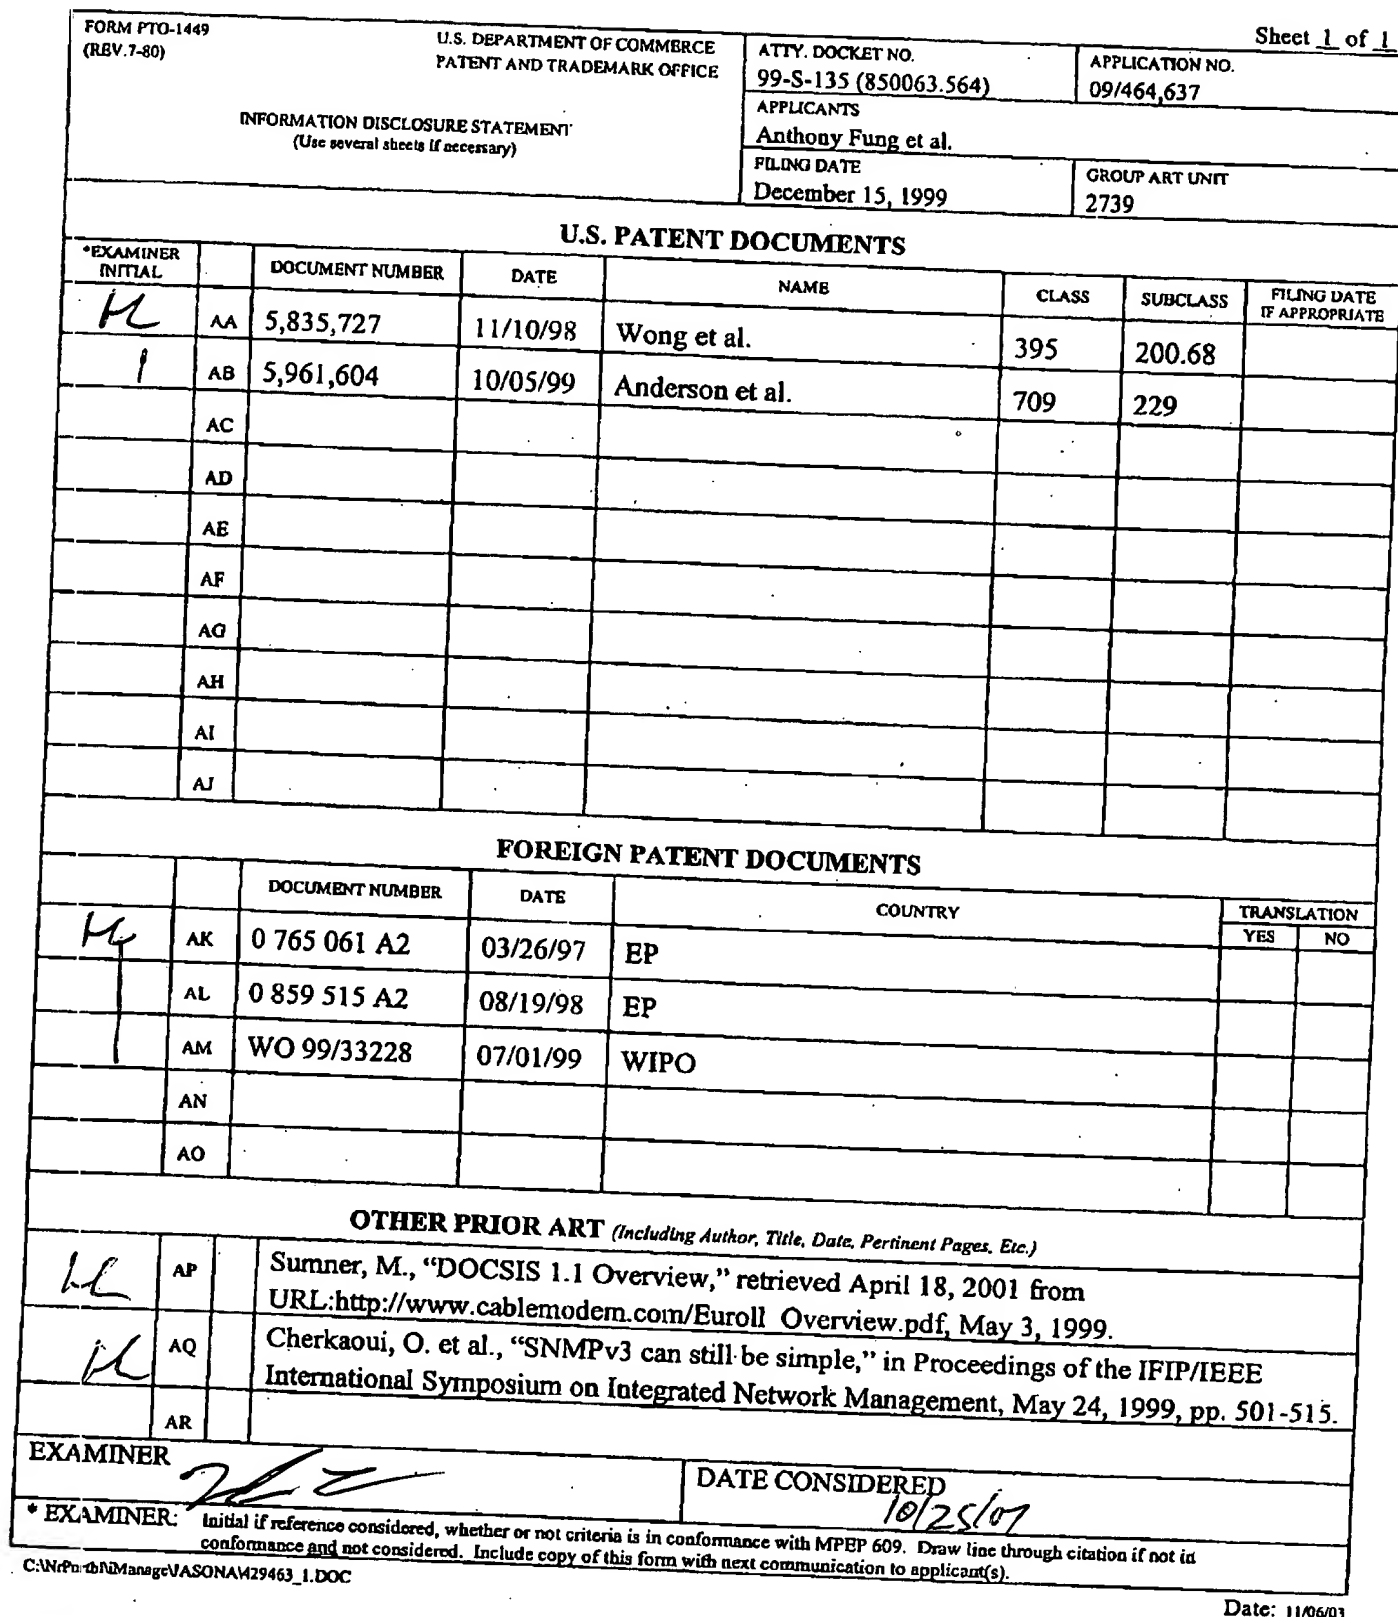 Sheet 1 of 1
FORM PTO-1449
(REV.7-80)
U.S. DEPARTMENT OF COMMERCE
PATENT AND TRADEMARK OFFICE
INFORMATION DISCLOSURE STATEMENT
(Use several sheets if necessary)
ATTY. DOCKET NO.
99-S-135 (850063.564)
APPLICATION NO.
09/464,637
APPLICANTS
Anthony Fung et al.
FILING DATE
December 15, 1999
GROUP ART UNIT
2739
U.S. PATENT DOCUMENTS
*EXAMINER INITIAL DOCUMENT NUMBER DATE NAME CLASS SUBCLASS FILING DATE IF APPROPRIATE
AA 5,835,727 11/10/98 Wong et al. 395 200.68
AB 5,961,604 10/05/99 Anderson et al. 709 229
AC
AD
AE
AF
AG
AH
AI
AJ
FOREIGN PATENT DOCUMENTS
DOCUMENT NUMBER DATE COUNTRY TRANSLATION
YES NO
AK 0 765 061 A2 03/26/97 EP
AL 0 859 515 A2 08/19/98 EP
AM WO 99/33228 07/01/99 WIPO
AN
AO
OTHER PRIOR ART (Including Author, Title, Date, Pertinent Pages, Etc.)
AP Sumner, M., “DOCSIS 1.1 Overview,” retrieved April 18, 2001 from
URL:http://www.cablemodem.com/Euroll Overview.pdf, May 3, 1999.
AQ Cherkaoui, O. et al., “SNMPv3 can still be simple,” in Proceedings of the IFIP/IEEE
International Symposium on Integrated Network Management, May 24, 1999, pp. 501-515.
AR
EXAMINER
DATE CONSIDERED
10/25/07
* EXAMINER: Initial if reference considered, whether or not criteria is in conformance with MPEP 609. Draw line through citation if not in
conformance and not considered. Include copy of this form with next communication to applicant(s).
Date: 11/06/03